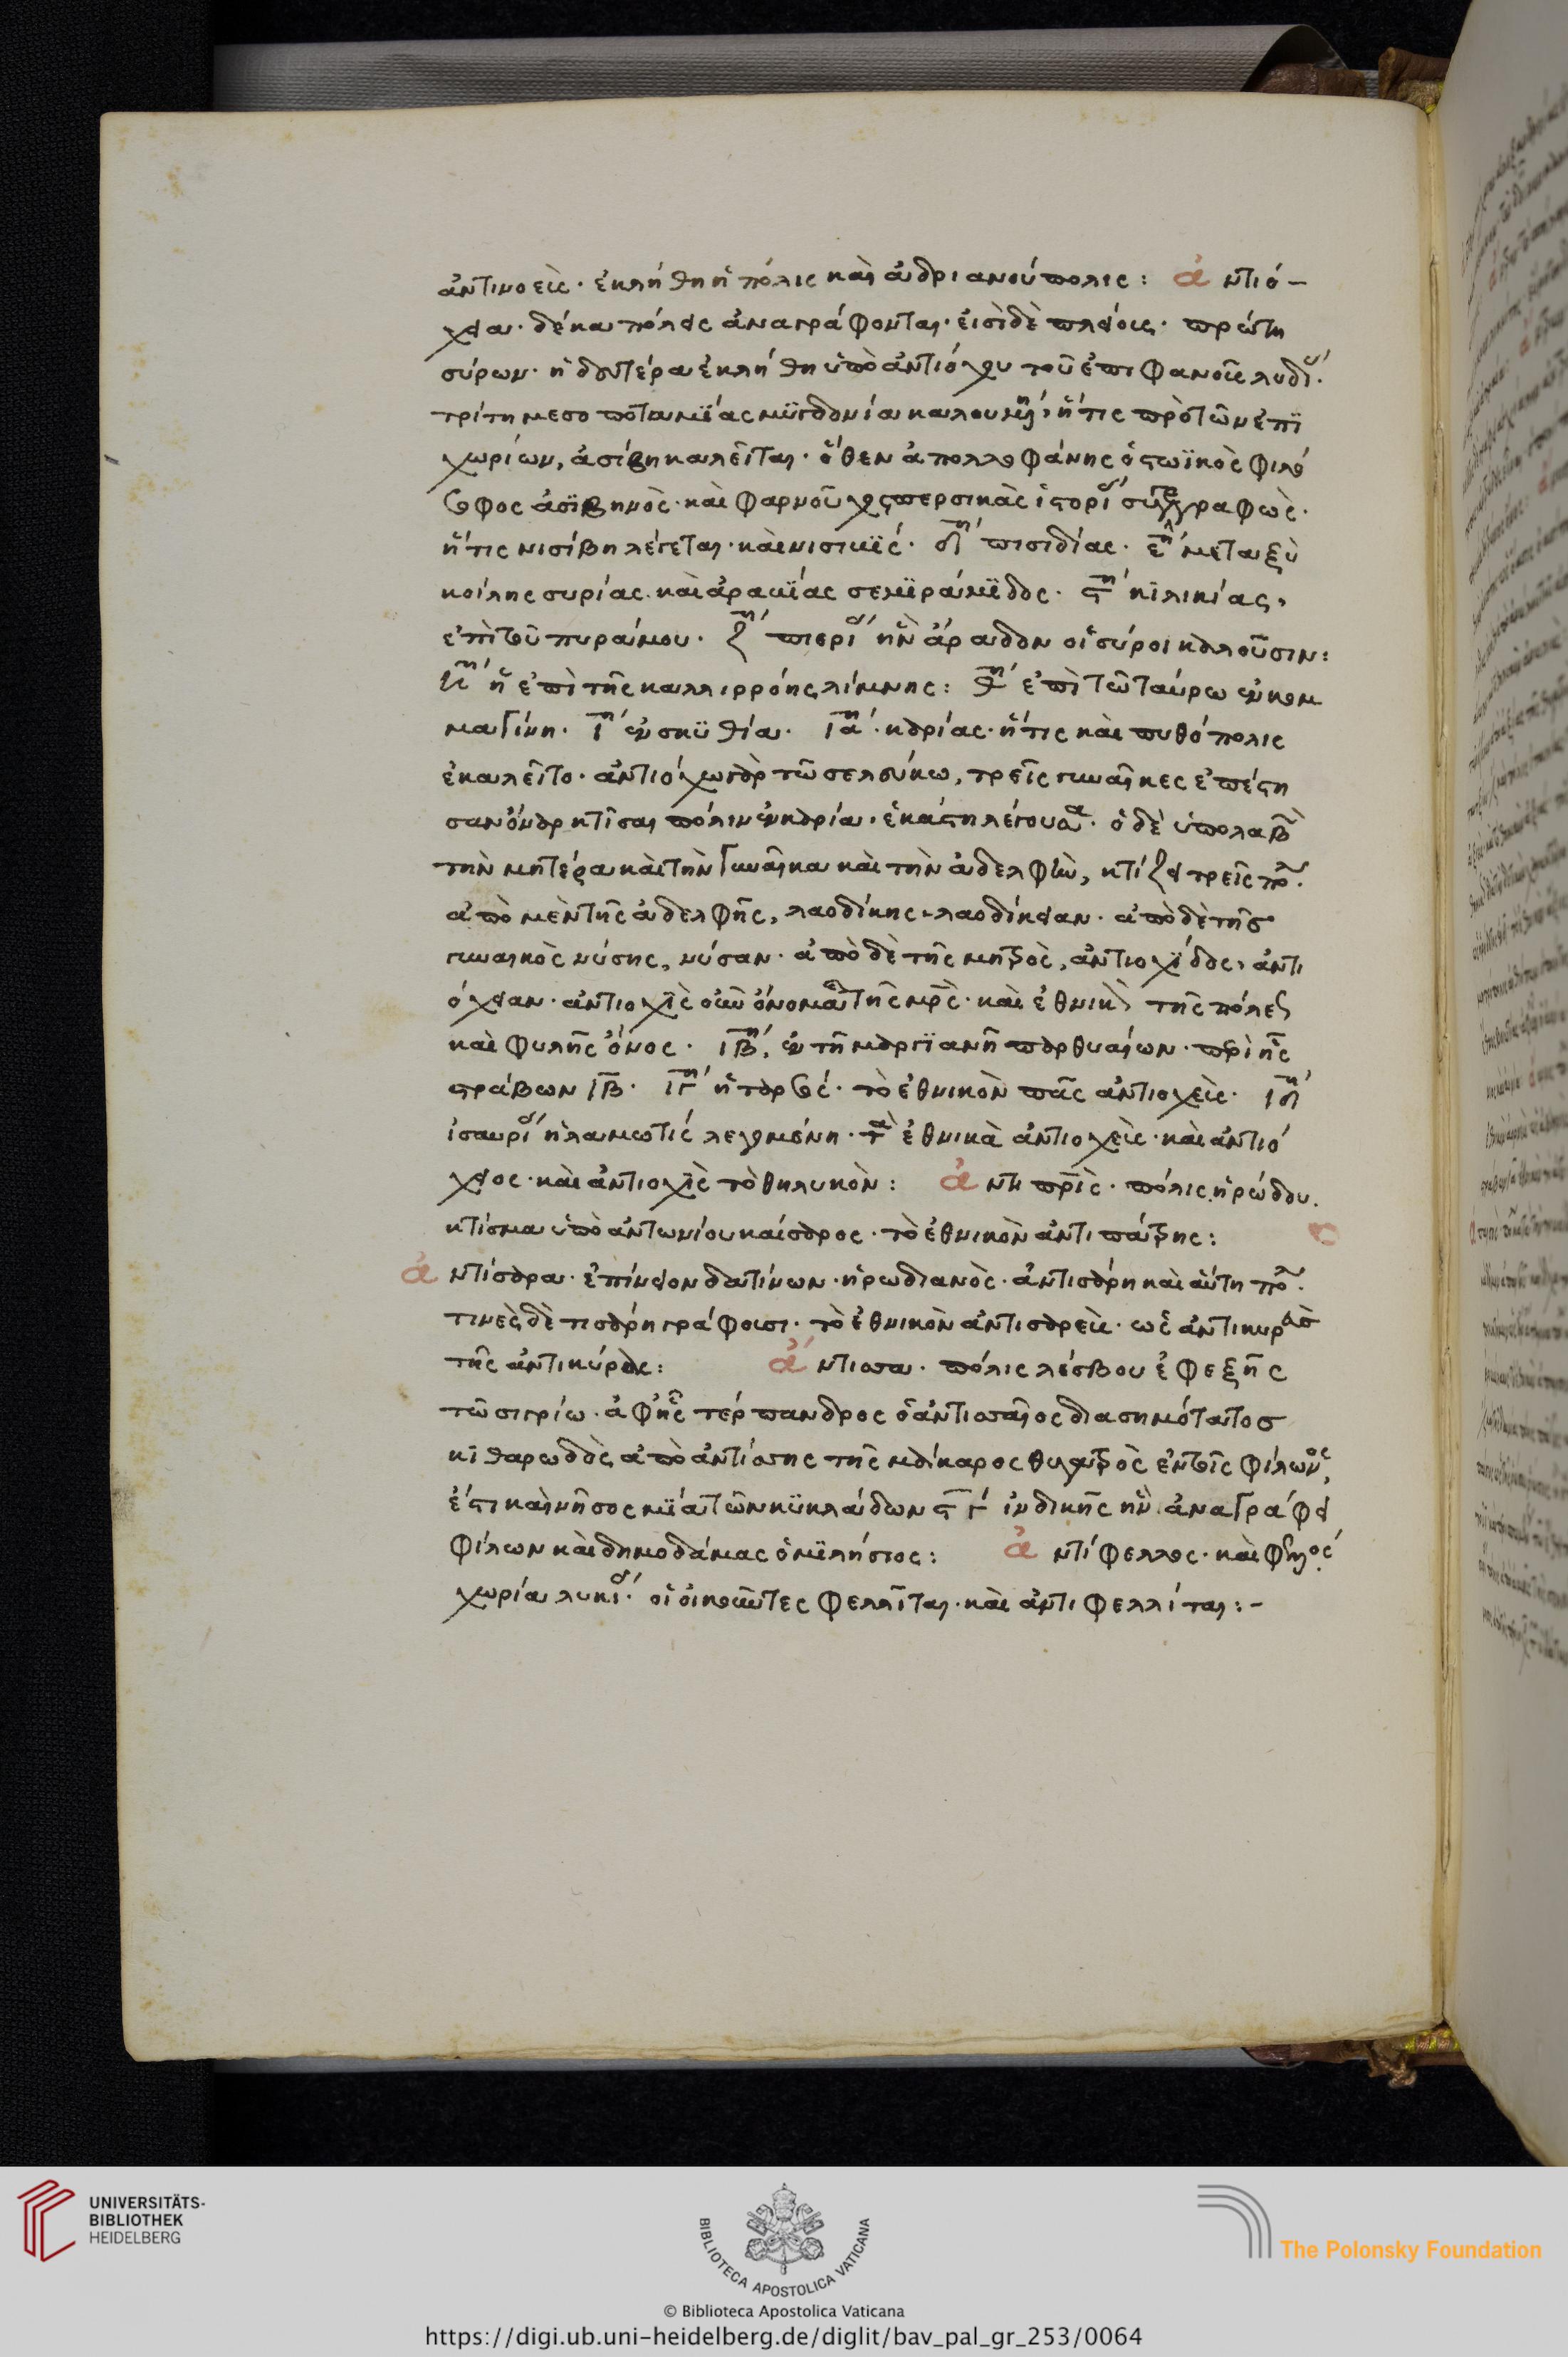 ἀντινοεὶς· ἐκλήθη ἡ πόλις καὶ ἀδριανούπολις: ἀντιό-
χεια· δέκα πόλεις ἀναγράφονται· εἰσὶ δὲ πλείους· πρώτη
σύρων· ἡ δευτέρα ἐκλήθη ὑπὸ ἀντιόχου τοῦ ἐπιφανοῦς λυδί·
τρίτη μεσοποταμίας μϋγδονία καλουμένη, ἥτις πρὸ τῶν ἐπϊ
χωρίων, ἀσίβη καλεῖται· ὅθεν ἀπολλοφάνης ὁ στωϊκὸς φιλό
σοφος ἀσϊβηνὸς· καὶ φαρνοῦχος περσικὰς ἱστορί συγγραφὼς·
ἥτις νισίβη λέγεται· καὶ νισιβϊς· δ πισιδίας· ε μεταξὺ
κοίλης συρίας καὶ ἀραβϊας σεμϊράμϊδος· ϛ κϊλικίας,
ἐπὶ τοῦ πυράμου· ζ πιερί ἣν ἄραδον οἱ σύροι καλοῦσιν:
η ἡ ἐπὶ τῆς καλλιρρόης λίμνης: θ ἐπὶ τῶ ταύρω ἐν κομ
μαγίνη· ι ἐν σκϋθία· ια· καρίας· ἥτις καὶ πυθόπολις
ἐκαλεῖτο· ἀντιόχω γὰρ τῶ σελεύκω, τρεῖς γυναῖκες ἐπέστη
σαν ὄναρ κτῖσαι πόλιν ἐν καρία· ἑκάστη λέγουσα· ὁ δὲ ὑπολαβ
τὴν μητέρα καὶ τὴν γυναῖκα καὶ τὴν ἀδελφὴν, κτίζει τρεῖς πο·
ἀπὸ μὲν τῆς ἀδελφῆς, λαοδίκης λαοδίκειαν· ἀπὸ δὲ τῆς
γυναικὸς νύσης, νύσαν· ἀπὸ δὲ τῆς μητρὸς, ἀντιοχίδος, ἀντι
όχειαν· ἀντιοχὶς οὖν ὄνομα τῆς μρς· καὶ ἐθνικὸ τῆς πόλεως
καὶ φυλῆς ὄνος· ιβ, ἐν τῆ μαργϊανῆ παρθυαίων· περὶ ἧς
στράβων ιβ· ιγ ἡ ταρσὶς· τὸ ἐθνικὸν πάσης ἀντιοχεὶς· ιδ
ἰσαυρί ἡ λαμωτὶς λεγομένη· τὰ ἐθνικὰ ἀντιοχεὶς· καὶ ἀντιό
χειος· καὶ ἀντιοχὶς τὸ θηλυκὸν: ἀντιπατρὶς· πόλις ἡρώδου.
κτίσμα ὑπὸ ἀντωνίου καίσαρος· τὸ ἐθνικὸν ἀντιπάτρης:
ἀντίσαρα· ἐπίνειον δατίνων· ἡρωδιανὸς· ἀντισάρη καὶ αὕτη πο·
τινὲς δὲ τισάρη γράφουσι· τὸ ἐθνικὸν ἀντισαρεὺς· ὡς ἀντικυρεὺς
τῆς ἀντικύρας: ἄντισσα· πόλις λέσβου ἐφεξῆς
τῶ σιγρίω· ἀφ' ἧς τέρπανδρος ὁ ἀντισσαῖος διασημότατος
κιθαρωδὸς, ἀπὸ ἀντίσσης τῆς μάκαρος θυγατρὸς ἐν τοῖς φίλωνος,
ἔστι καὶ νῆσος μϊα τῶν κϋκλάδων ϛ γ ἰνδικῆς ἣν ἀναγράφει
φίλων καὶ δημοδάμας ὁ μϊλήσιος: ἀντίφελλος· καὶ φελλὸς
χωρία λυκί· οἱ οἰκοῦντες φελλῖται· καὶ ἀντιφελλίται:-
UNIVERSITÄTS-
BIBLIOTHEK
HEIDELBERG
BIBLIOTECA APOSTOLICA VATICANA
The Polonsky Foundation
© Biblioteca Apostolica Vaticana
https://digi.ub.uni-heidelberg.de/diglit/bav_pal_gr_253/0064